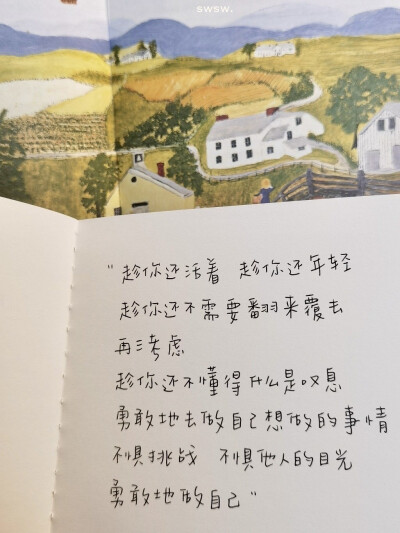 swsw.
“趁你还活着 趁你还年轻
趁你还不需要翻来覆去
再三考虑
趁你还不懂得什么是叹息
勇敢地去做自己想做的事情
不惧挑战 不惧他人的目光
勇敢地做自己”